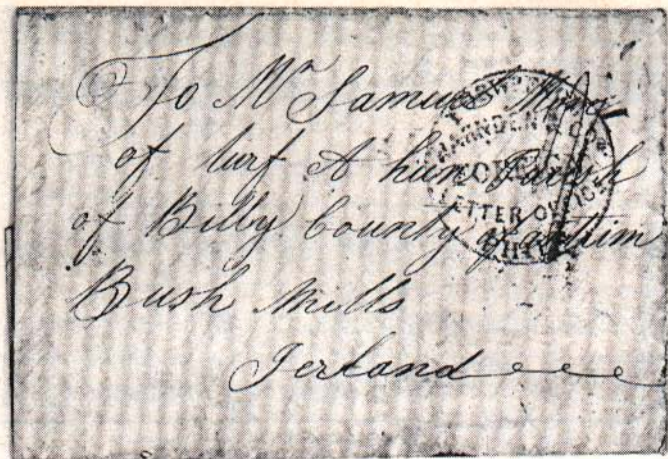 To Mr Samuel
of turf A hun Parish
of Billy County of antrim
Bush Mills
Jerland
HARNDEN & COS
LETTER OFFICE